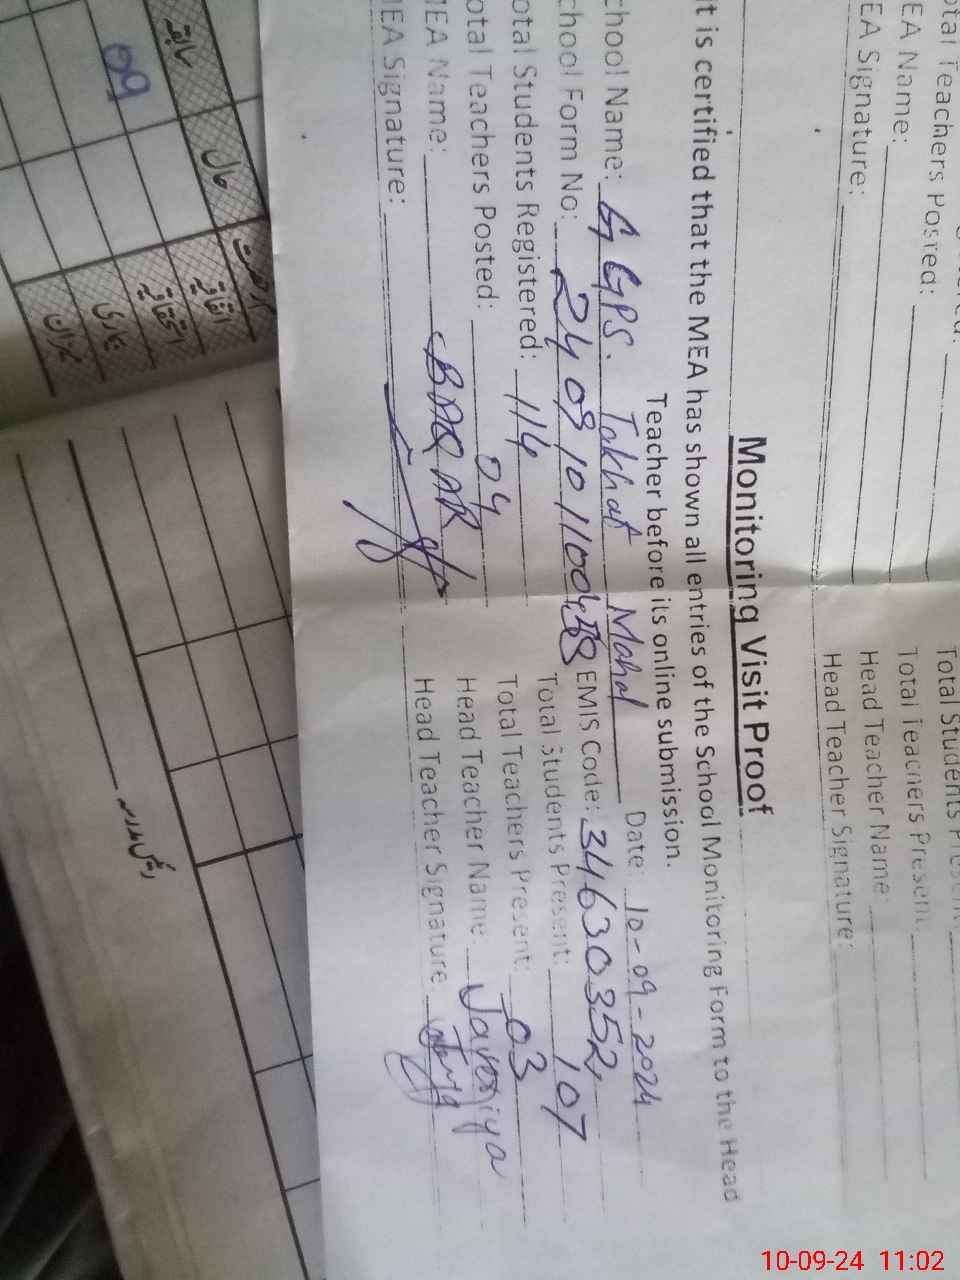 Total Students Present
otal Teachers Posted: Total Teachers Present:
EA Name: Head Teacher Name:
EA Signature: Head Teacher Signature:
Monitoring Visit Proof
It is certified that the MEA has shown all entries of the School Monitoring Form to the Head
Teacher before its online submission.
chool Name: GGPS. Takhat Mahal Date: 10-09-2024
chool Form No: EMIS Code: 34630352
otal Students Registered: 114 Total Students Present: 107
otal Teachers Posted: 04 Total Teachers Present: 03
MEA Name: BAQAR Head Teacher Name: Javeriya
MEA Signature: Head Teacher Signature
سابقہ حال
09
اتفاقیہ
استحقاقیہ
بیماری
میزان
رئیس مدرسہ
10-09-24 11:02